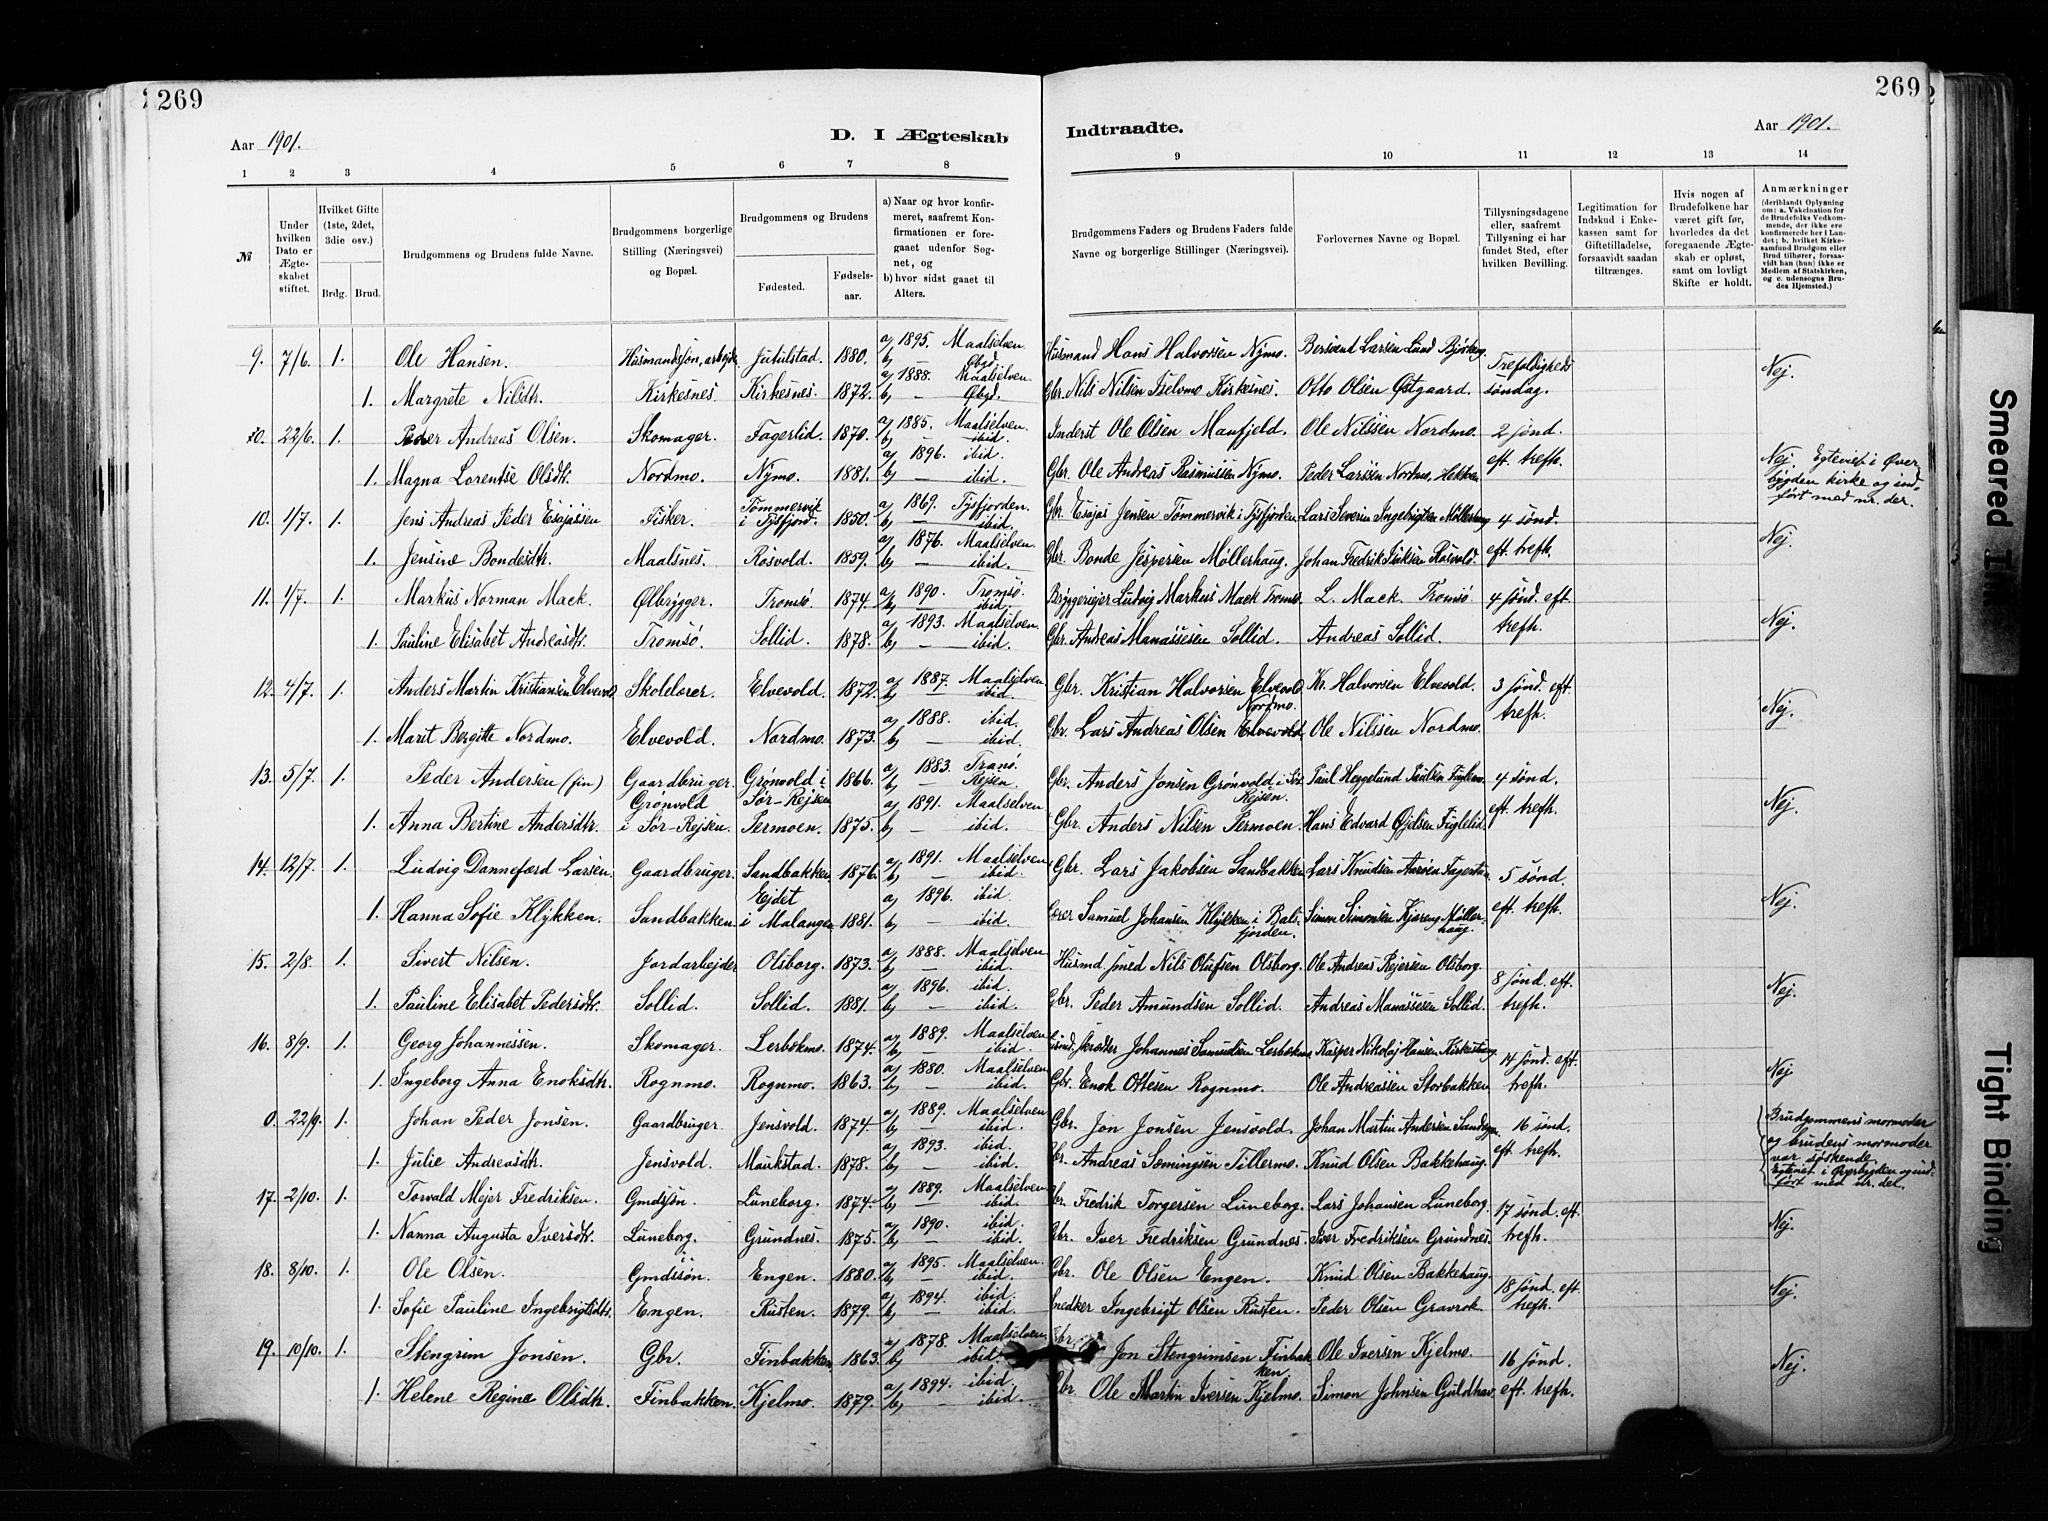 269
269
Aar 1901.
D. I Ægteskab
Indtraadte.
Aar 1901.
1 2 3 4 5 6 7 8 9 10 11 12 13 14
№
Under hvilken Dato er Ægteskabet stiftet.
Hvilket Gifte (1ste, 2det, 3die osv.)
Brdg. Brud.
Brudgommens og Brudens fulde Navne.
Brudgommens borgerlige Stilling (Næringsvei) og Bopæl.
Brudgommens og Brudens
Fødested.
Fødsels-aar.
a) Naar og hvor konfirmeret, saafremt Konfirmationen er foregaaet udenfor Sognet, og
b) hvor sidst gaaet til Alters.
Brudgommens Faders og Brudens Faders fulde Navne og borgerlige Stillinger (Næringsvei).
Forlovernes Navne og Bopæl.
Tillysningsdagene eller, saafremt Tillysning ei har fundet Sted, efter hvilken Bevilling.
Legitimation for Indskud i Enkekassen samt for Giftetilladelse, forsaavidt saadan tiltrænges.
Hvis nogen af Brudefolkene har været gift før, hvorledes da det foregaaende Ægteskab er opløst, samt om lovligt Skifte er holdt.
Anmærkninger (deriblandt Oplysning om: a. Vakcination for de Brudefolks Vedkommende, der ikke ere konfirmerede her i Landet; b. hvilket Kirkesamfund Brudgom eller Brud tilhører, forsaavidt han (hun) ikke er Medlem af Statskirken, og c. udensogns Brudes Hjemsted.)
9. 7/6. 1. Ole Hansen. Husmandssøn, arbejder Jutulstad. 1880. a) 1895. Maalselven b) — Øbyd. Husmand Hans Halvorsen Nymo. Bersvend Larsen Lund Bjørkeng. Trefoldigheds
1. Margrete Nilsdtr. Kirkesnes Kirkesnes. 1872. a) 1888. Maalselven b) — Øbyd. Gbr. Nils Nilsen Iselvmo Kirkesnes. Otto Olsen Østgaard. søndag. Nej.
0. 22/6. 1. Peder Andreas Olsen. Skomager. Fagerlid. 1870. a) 1885. Maalselven b) — ibid. Inderst Ole Olsen Manfjeld. Ole Nilssen Nordmo. 2 sønd.
1. Magna Lorentse Olsdtr. Nordmo. Nymo. 1881. a) 1896. ibid. b) — ibid. Gbr. Ole Andreas Rasmussen Nymo. Peder Larssen Nordmo, eft. trefh. Nej. Egteviet i Øverbygden kirke og indført med nr. der.
10. 1/7. 1. Jens Andreas Peder Esajassen Fisker. Tømmervik i Tysfjord. 1850. a) 1869. Tysfjorden b) — ibid. Gbr. Esajas Jensen Tømmervik i Tysfjorden Lars Severin Ingebrigtsen Møllerhaug 4 sønd.
1. Jensine Bondesdtr. Maalsnes. Rosvold. 1859. a) 1876. Maalselven b) — ibid. Gbr. Bonde Jespersen Møllerhaug. Johan Fredrik Isaksen Rosvold. eft. trefh. Nej.
11. 1/7. 1. Markus Norman Mack. Ølbrygger. Tromsø. 1874. a) 1890. Tromsø. b) — ibid. Bryggeriejer Ludvig Markus Mack Tromsø. L. Mack. Tromsø. 4 sønd. eft.
1. Pauline Elisabet Andreasdtr. Tromsø. Sollid. 1878. a) 1893. Maalselven b) — ibid. Gbr. Andreas Manassesen Sollid. Andreas Sollid. trefh. Nej.
12. 4/7. 1. Anders Martin Kristiansen Elvevold. Skolelærer. Elvevold. 1872. a) 1887. Maalselven b) — ibid. Gbr. Kristian Halvorsen Elvevold Kr. Halvorsen Elvevold. 3 sønd. eft.
1. Marit Bergitte Nordmo. Elvevold. Nordmo. 1873. a) 1888. ibid. b) — ibid. Gbr. Lars Andreas Olsen Elvevold Nordmo. Ole Nilssen Nordmo. trefh. Nej.
13. 5/7. 1. Peder Andersen (fin) Gaardbruger. Grønvold i Sør-Rejsen 1866. a) 1883. Tranø. b) — Rejsen. Gbr. Anders Jonsen Grønvold i Sør Rejsen. Paul Heggelund Paulsen Fuglemo 4 sønd.
1. Anna Bertine Andersdtr. Grønvold i Sør-Rejsen. Permoen. 1875. a) 1891. Maalselven b) — ibid. Gbr. Anders Nilsen Permoen. Hans Edvard Øjelsen Fuglelid. eft. trefh. Nej.
14. 12/7. 1. Ludvig Dannefærd Larsen. Gaardbruger. Sandbakken 1876. a) 1891. Maalselven b) — ibid. Gbr. Lars Jakobsen Sandbakken Lars Knudsen 5 sønd.
1. Hanna Sofie Klykken. Sandbakken. Ejdet i Malangen 1881. a) 1896. ibid. b) — ibid. Lærer Samuel Johansen Klykken i Balsfjorden. Simon Simonsen Kjæreng Møllerhaug. eft. trefh. Nej.
15. 2/8. 1. Sivert Nilsen. Jordarbejder Olsborg. 1873. a) 1888. Maalselven b) — ibid. Husmd. smed Nils Olufsen Olsborg. Ole Andreas Rejersen Olsborg. 8 sønd. eft.
1. Pauline Elisabet Pedersdtr. Sollid. Sollid. 1881. a) 1896. ibid. b) — ibid. Gbr. Peder Amundsen Sollid. Andreas Manassesen Sollid. trefh. Nej.
16. 8/9. 1. Georg Johannessen. Skomager. Lerbækmo. 1874. a) 1889. Maalselven b) — ibid. skræder Johannes Samuelsen Lerbækmo Kasper Nikolaj Hansen Kirkeshaug 14 sønd. eft.
1. Ingeborg Anna Enoksdtr. Rognmo. Rognmo. 1863. a) 1880. Maalselven b) — ibid. Gbr. Enok Ottesen Rognmo. Ole Andreassen Storbakken trefh. Nej
0. 22/9. 1. Johan Peder Jonsen. Gaardbruger Jensvold. 1874. a) 1889. Maalselven b) — ibid. Gbr. Jon Jonsen Jensvold. Johan Martin Andersen 16 sønd.
1. Julie Andreasdtr. Jensvold. Maukstad. 1878. a) 1893. ibid. b) — ibid. Gbr. Andreas Sæmingsen Tillermo. Knud Olsen Bakkehaug. eft. trefh. Brudgommens mormoder og brudens mormoder var søskende. Egteviet i Øverbygden og indført med nr. der.
17. 2/10. 1. Torvald Mejer Fredriksen. Gmdsøn. Luneborg. 1874. a) 1889. Maalselven b) — ibid. Gbr. Fredrik Torgersen Luneborg. Lars Johansen Luneborg. 17 sønd. eft.
1. Nanna Augusta Iversdtr. Luneborg. Grundnes. 1875. a) 1890. ibid. b) — ibid. Gbr. Iver Fredriksen Grundnes. Iver Fredriksen Grundnes. trefh. Nej.
18. 8/10. 1. Ole Olsen. Gmdssøn. Engen. 1880. a) 1895. Maalselven. b) — ibid. Gbr. Ole Olsen Engen. Knud Olsen Bakkehaug. 18 sønd. eft.
1. Sofie Pauline Ingebrigtsdtr. Engen. Rusten. 1879. a) 1894. ibid. b) — ibid. Snedker Ingebrigt Olsen Rusten. Peder Olsen Gravrok. trefh. Nej.
19. 10/10. 1. Stengrim Jonsen. Gbr. Finbakken 1863. a) 1878. Maalselven b) — ibid. Gbr. Jon Stengrimsen Finbakken Ole Iversen Kjelmo. 16 sønd.
1. Helene Regine Olsdtr. Finbakken. Kjelmo. 1879. a) 1894. ibid. b) — ibid. Gbr. Ole Martin Iversen Kjelmo. Simon Johnsen Guldhav. eft. trefh. Nej.
Smeared
Tight Binding